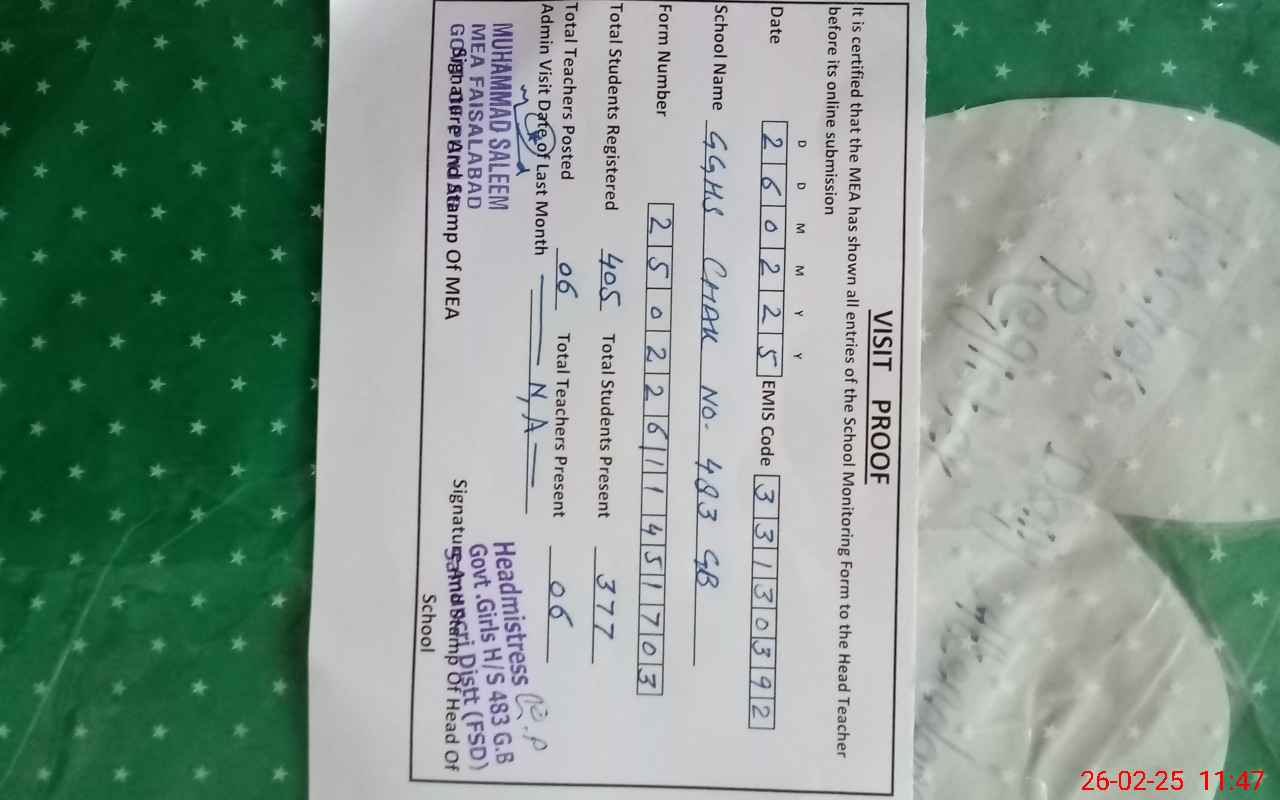 VISIT PROOF
It is certified that the MEA has shown all entries of the School Monitoring Form to the Head Teacher
before its online submission
D D M M Y Y
Date 2 6 0 2 2 5 EMIS Code 3 3 1 3 0 3 9 2
School Name GGHS CHAK NO. 483 GB
Form Number 2 5 0 2 2 6 1 1 4 5 1 7 0 3
Total Students Registered 405 Total Students Present 377
Total Teachers Posted 06 Total Teachers Present 06
Admin Visit Date of Last Month N,A
MUHAMMAD SALEEM
MEA FAISALABAD
Signature And Stamp Of MEA
Headmistress
Govt .Girls H/S 483 G.B
Distt (FSD)
Signature And Stamp Of Head Of
School
26-02-25 11:47